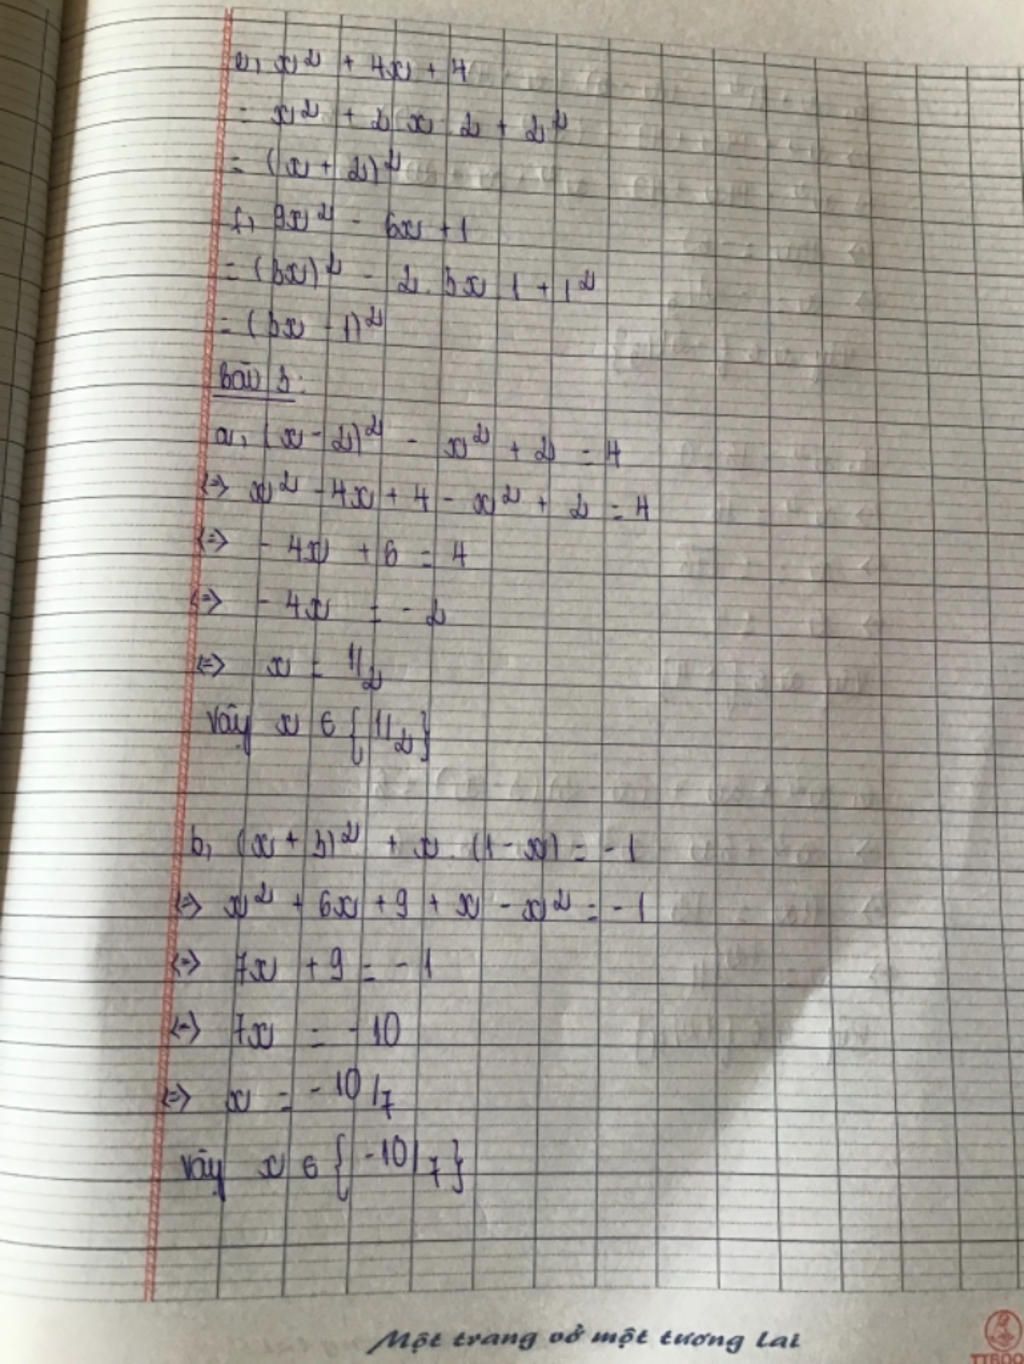 e, x² + 4x + 4
= x² + 2 x 2 + 2²
= (x + 2)²
f, 9x² - 6x + 1
= (3x)² - 2. 3x 1 + 1²
= (3x - 1)²
Bài 3:
a, (x - 2)² - x² + 2 = 4
<=> x² - 4x + 4 - x² + 2 = 4
<=> - 4x + 6 = 4
<=> - 4x = - 2
<=> x = 1/2
Vậy x ∈ {1/2}
b, (x + 3)² + x. (1 - x) = - 1
<=> x² + 6x + 9 + x - x² = - 1
<=> 7x + 9 = - 1
<=> 7x = - 10
<=> x = - 10/7
Vậy x ∈ {- 10/7}
Một trang vở một tương lai